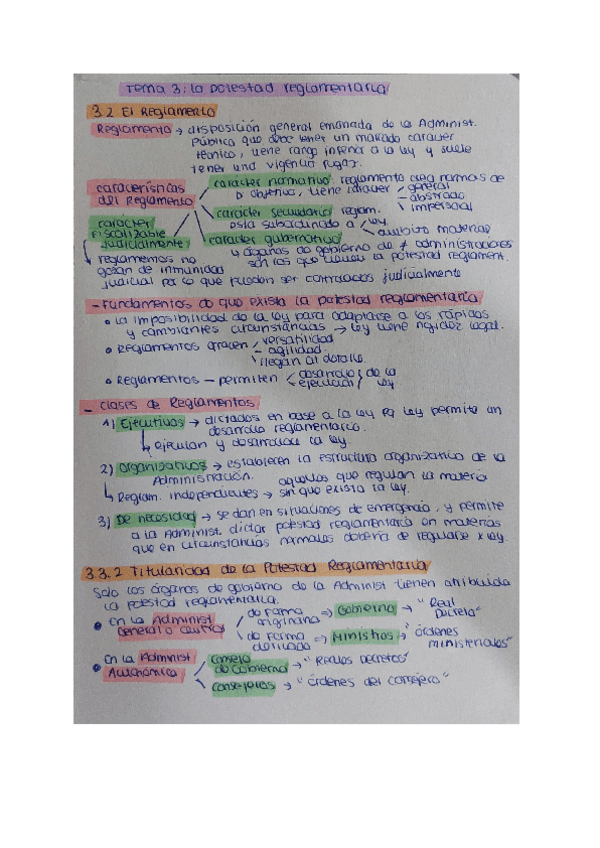 Tema 3: la potestad reglamentaria
3.2 El Reglamento
Reglamento → disposición general emanada de la Administ.
Pública que debe tener un marcado carácter
técnico, tiene rango inferior a la ley y suele
tener una vigencia fugaz.
características del Reglamento
carácter normativo: reglamento crea normas de
D objetivo, tiene carácter general
abstracto
impersonal
carácter secundario: reglam.
está subordinado a ley
ámbito material
carácter gubernativo
y órganos de gobierno de ≠ administraciones
son los que tienen la potestad reglament.
carácter fiscalizable judicialmente
reglamentos no
gozan de inmunidad
judicial por lo que pueden ser controlados judicialmente
- Fundamentos de que exista la potestad reglamentaria
• La imposibilidad de la ley para adaptarse a los rápidos
y cambiantes circunstancias → ley tiene rigidez legal.
• Reglamentos ofrecen versatilidad
- agilidad.
llegan al detalle.
• Reglamentos – permiten desarrollo de la
ejecución ley
- Clases de Reglamentos
1) Ejecutivos → dictados en base a la ley pq ley permite un
desarrollo reglamentario.
↳ ejecutan y desarrollan la ley.
2) Organizativos → establecen la estructura organizativa de la
Administración.
↳ Reglam. independientes → aquellos que regulan la materia
sin que exista la ley.
3) De necesidad → se dan en situaciones de emergencia, y permite
a la Administ. dictar potestad reglamentaria en materias
que en circunstancias normales debería de regularse x ley.
3.3.2 Titularidad de la Potestad Reglamentaria
Solo los órganos de gobierno de la Administ tienen atribuida
la potestad reglamentaria.
• En la Administ General o central
de forma originaria ⇒ Gobierno → "Real Decreto"
de forma derivada ⇒ Ministros → "órdenes ministeriales"
• En la Administ Autonómica
consejo de Gobierno → "Reales Decretos"
consejeros → "órdenes del consejero"